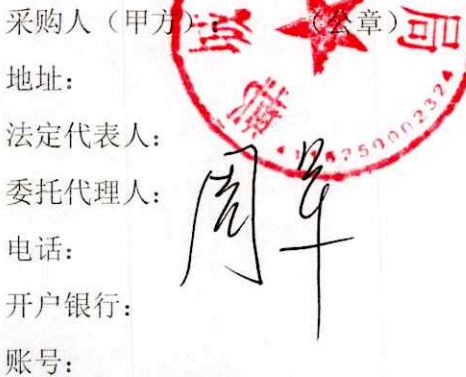 采购人（甲方）：（公章）
地址：
法定代表人：
委托代理人：
电话：
开户银行：
账号：
周军
局